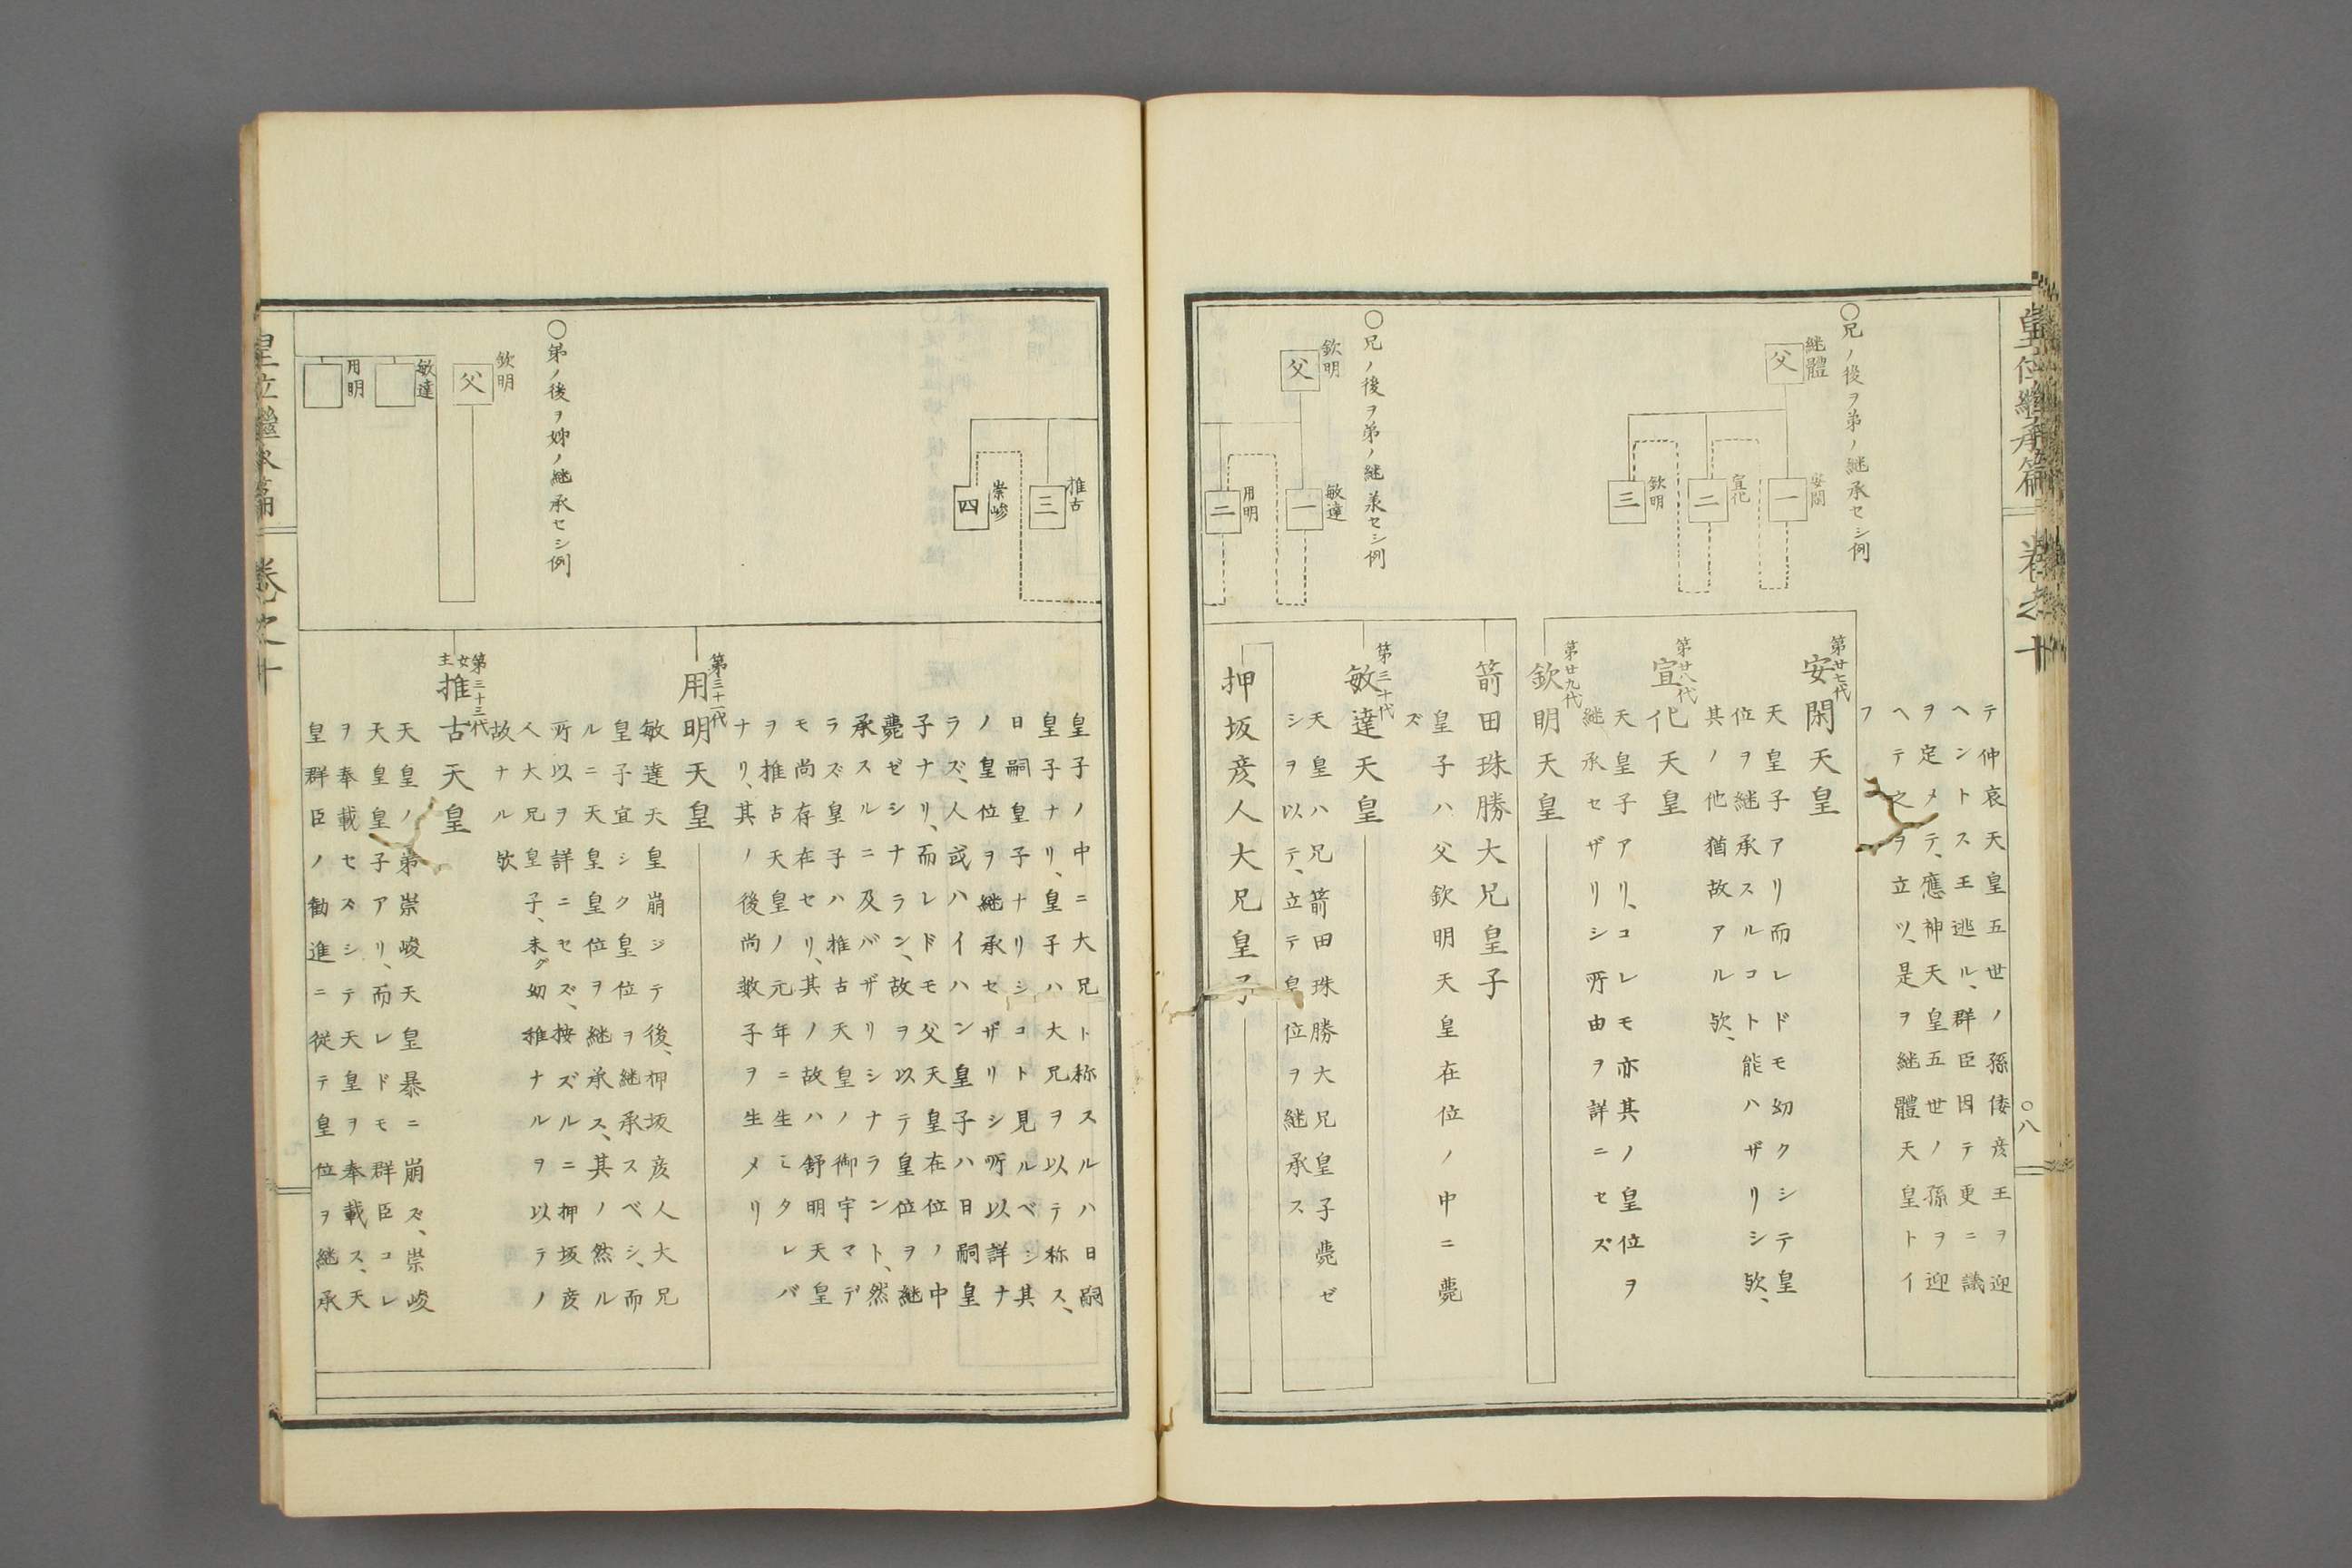 皇位繼承篇 卷之十
○八
○兄ノ後ヲ弟ノ継承セシ例
継體
父
安閑
一
宣化
二
欽明
三
○兄ノ後ヲ弟ノ継承セシ例
欽明
父
敏達
一
用明
二
テ仲哀天皇五世ノ孫倭彦王ヲ迎
ヘントス王逃ル、群臣因テ更ニ議
ヲ定メテ、應神天皇五世ノ孫ヲ迎
ヘテ之ヲ立ツ、是ヲ継體天皇トイ
フ
第廿七代
安閑天皇
天皇子アリ而レドモ幼クシテ皇
位ヲ継承スルコト能ハザリシ歟、
其ノ他猶故アル歟、
第廿八代
宣化天皇
天皇子アリ、コレモ亦其ノ皇位ヲ
継承セザリシ所由ヲ詳ニセズ
第廿九代
欽明天皇
箭田珠勝大兄皇子
皇子ハ父欽明天皇在位ノ中ニ薨
ズ
第三十代
敏達天皇
天皇ハ兄箭田珠勝大兄皇子薨ゼ
シヲ以テ、立テ皇位ヲ継承ス
押坂彦人大兄皇子
推古
三
崇峻
四
○弟ノ後ヲ姊ノ継承セシ例
欽明
父
敏達
用明
皇子ノ中ニ大兄ト称スルハ日嗣
皇子ナリ、皇子ハ大兄ヲ以テ称ス、
日嗣皇子ナリシコト見ルベシ其
ノ皇位ヲ継承セザリシ所以詳ナ
ラズ、人或ハイハン皇子ハ日嗣皇
子ナリ、而レドモ父天皇在位ノ中
薨ゼシナラン、故ヲ以テ皇位ヲ継
承スルニ及バザリシナラント、然
ラズ皇子ハ推古天皇ノ御宇マデ
モ尚存在セリ、其ノ故ハ舒明天皇
ヲ推古天皇ノ元年ニ生ミタレバ
ナリ、其ノ後尚数子ヲ生メリ
第三十一代
用明天皇
敏達天皇崩ジテ後、押坂彦人大兄
皇子宜シク皇位ヲ継承スベシ、而
ルニ天皇皇位ヲ継承ス、其ノ然ル
所以ヲ詳ニセズ、按ズルニ押坂彦
人大兄皇子、未ダ幼稚ナルヲ以テノ
故ナル歟
第三十三代
女主
推古天皇
天皇ノ弟崇峻天皇暴ニ崩ズ、崇峻
天皇皇子アリ、而レドモ群臣コレ
ヲ奉載セズシテ天皇ヲ奉載ス、天
皇群臣ノ勧進ニ従テ皇位ヲ継承
皇位繼承篇 卷之十